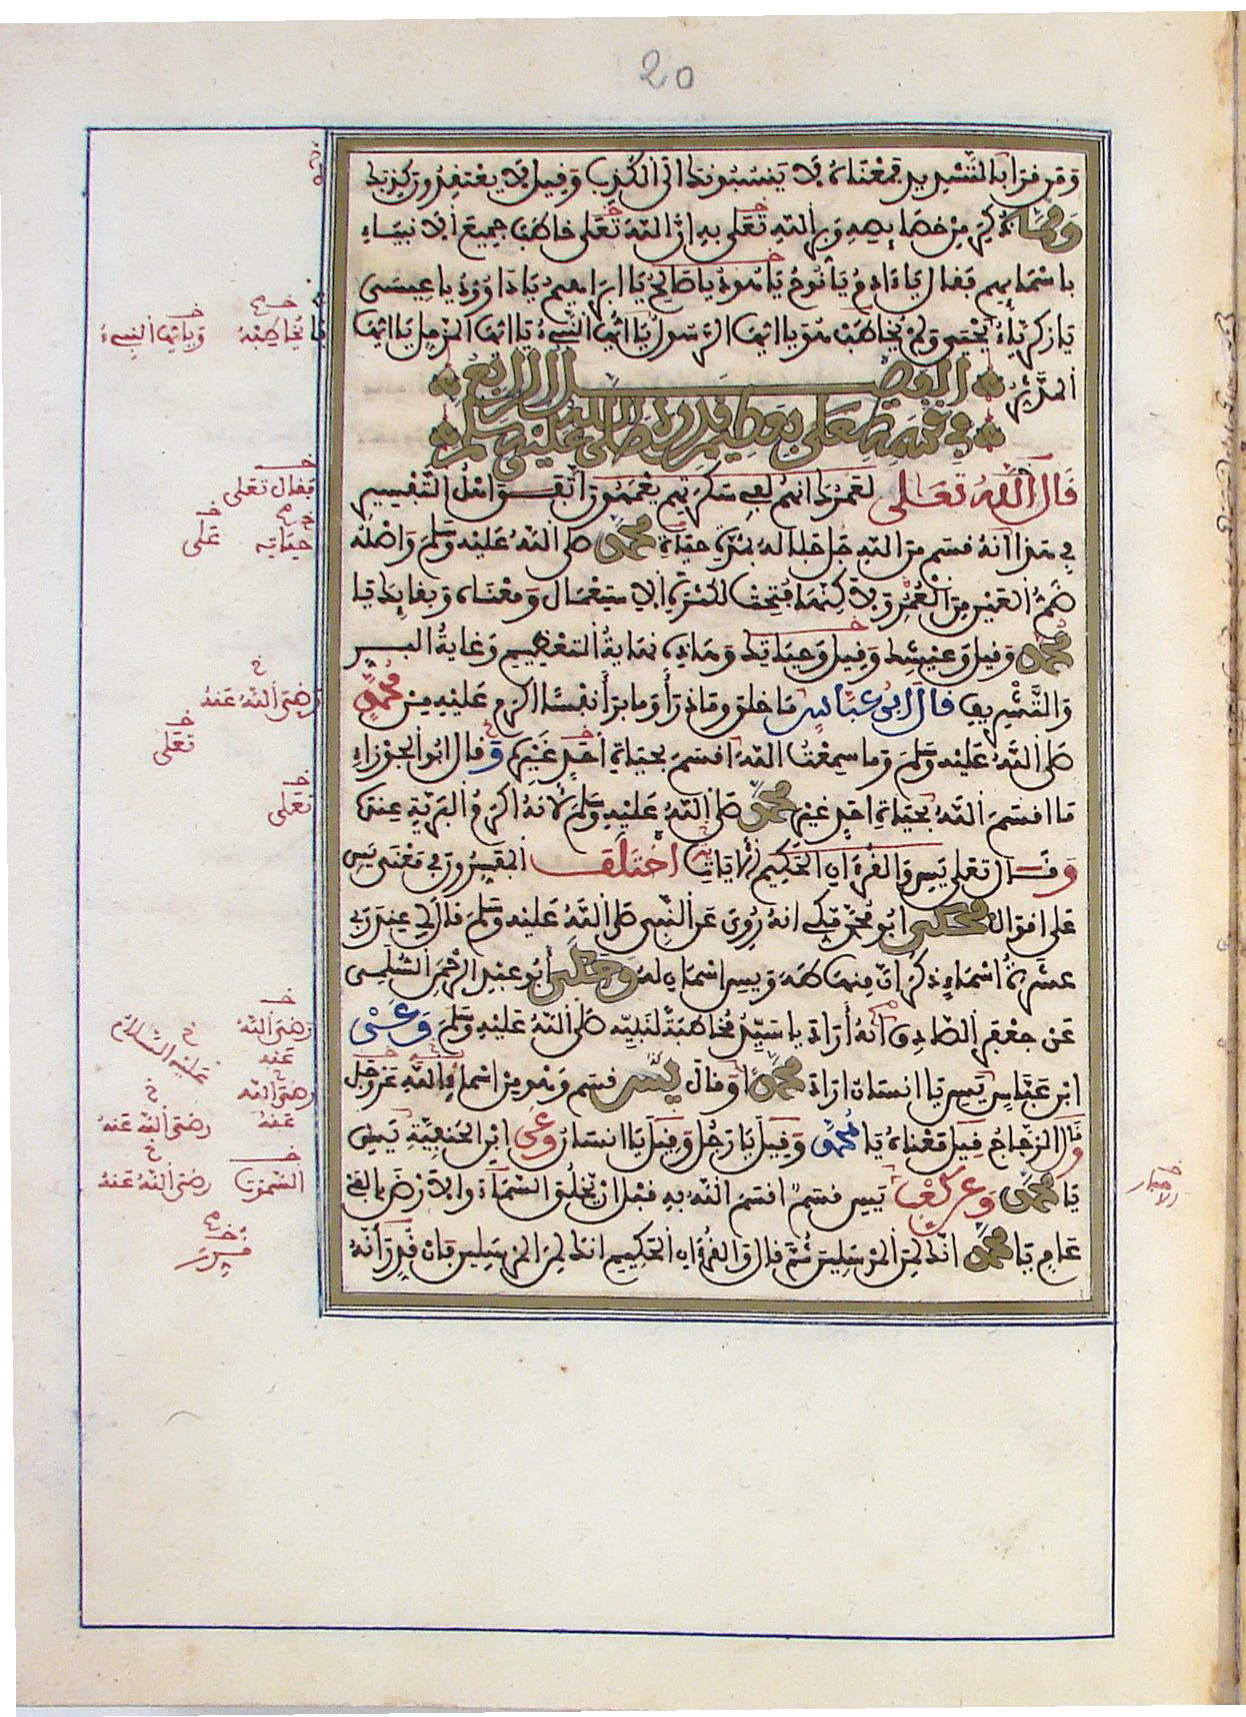 20
ومن قرأ بالتشديد فمعناه لا ينسبونك الى الكذب وقيل لا يعتقدون كذبك
ومما ذكر من خصائصه وبر الله تعلى به ان الله تعلى خاطب جميع الانبياء
باسمايهم فقال يا ءادم يا نوح يا هود يا صالح يا ابراهيم يا داوود يا عيسى
يا زكرياء يا يحيى ولم يخاطب هو يا ايها الرسول يا ايها النبيء يا ايها المزمل يا ايها
المدثر
الفصل الرابع
في قسمه تعلى بعظيم قدره صلى الله عليه وسلم
قال الله تعالى لعمرك انهم لفي سكرتهم يعمهون اتفق اهل التفسير
في هذا انه قسم من الله جل جلاله بمدة حياة محمد صلى الله عليه وسلم واصله
ضم العين من العمر ولاكنها فتحت لكثرة الاستعمال ومعناه وبقايك يا
محمد وقيل وعيشك وقيل وحياتك وهاذه نهاية التعظيم وغاية البر
والتشريف قال ابن عباس ما خلق وما ذرأ وما برأ نفسا اكرم عليه من محمد
صلى الله عليه وسلم وما سمعت الله اقسم بحياة احد غيره وقال ابو الجوزاء
ما اقسم الله بحياة احد غير محمد صلى الله عليه وسلم لانه اكرم البرية عنده
وقال تعلى يس والقرءان الحكيم الايات اختلف المفسرون في معنى يس
على اقوال فحكى ابو محمد مكي انه روي عن النبي صلى الله عليه وسلم قال لي عند ربي
عشرة اسماء ذكر ان منها طه ويس اسمان له وحكى ابو عبد الرحمن السلمي
عن جعفر الصادق انه أراد يا سيد مخاطبة لنبيه صلى الله عليه وسلم وعن
ابن عباس يس يا انسان اراد محمدا وقال يس قسم وهو من اسماء الله عز وجل
وقال الزجاج قيل معناه يا محمد وقيل يا رجل وقيل يا انسان وعن ابن الحنفية يس
يا محمد وعن كعب يس قسم اقسم الله به قبل ان يخلق السماء والارض بالفي
عام يا محمد انك لمن المرسلين ثم قال والقرءان الحكيم انك لمن المرسلين فان قدر انه
يخاطبه
ويا ايها النبيء
فقال تعلى
حياته
تعلى
رضى الله عنه
تعلى
تعلى
رضى الله عنه
عليه السلام
رضى الله عنه
رضى الله عنه
السموت
رضى الله عنه
قرر
الاحبار